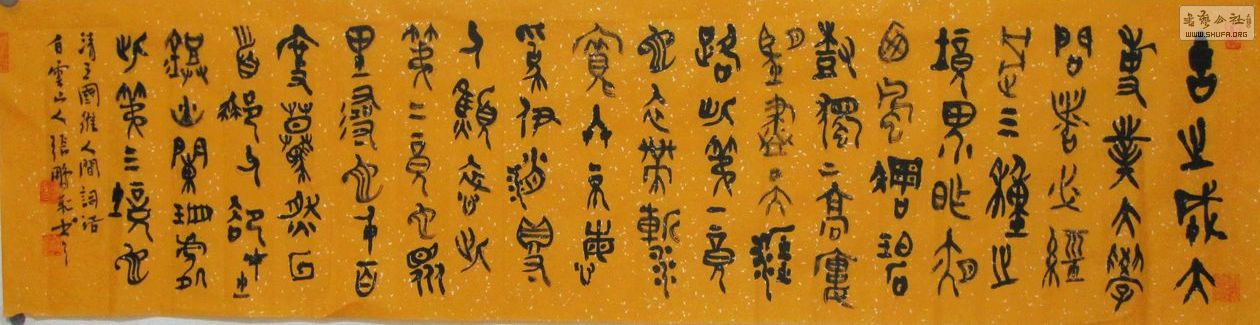 古之成大
事業大學
問者必經
過三種之
境界昨夜
西風凋碧
樹獨上高樓
望盡天涯
路此第一境
也衣帶漸
寬終不悔
為伊消得
人顦悴此
第二境也眾
里尋他千百
度驀然回
首那人卻在
燈火闌珊處
此第三境也
清王國維人間詞話
白雲山人張鵬書
書藝公社
WWW.SHUFA.ORG